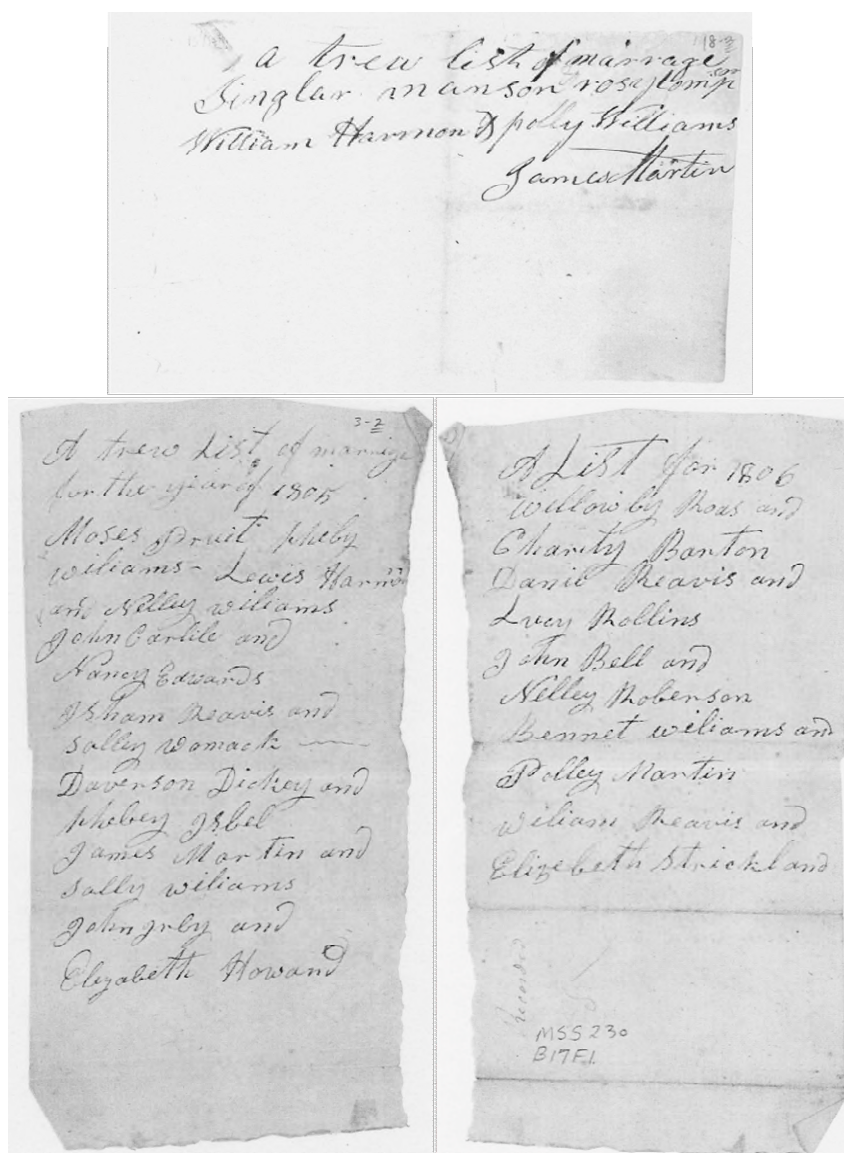 118-2
a trew list of marrage
Singlar manson rosey tomp
son
William Harmon & polly Williams
James Martin
3-2
A trew List of marrige
for the year of 1805
Moses Pruit pheby
wiliams - Lewis Harmon
and Nelley wiliams
John Carlile and
Nancy Edwards
Isham Reavis and
Salley Womack
Daverson Dickey and
phebey Isbel
James Martin and
Sally wiliams
John Irby and
Elizabeth Howard
A List for 1806
Willowby Roas and
Charity Barton
Daniel Reavis and
Lucy Rollins
John Bell and
Nelley Roberson
Bennet wiliams and
Polley Martin
Wiliam Reavis and
Elizebeth Strickland
Recorded
MSS 230
B17F1